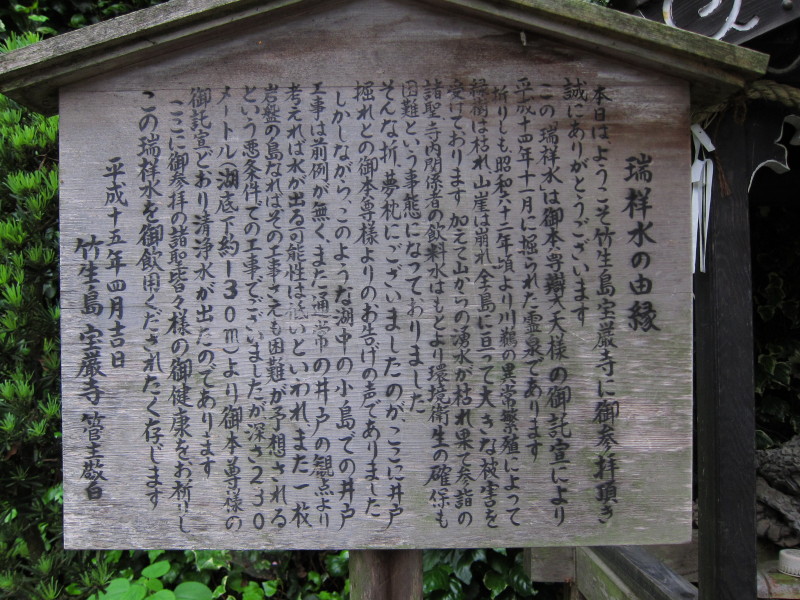 瑞祥水の由縁
本日は、ようこそ竹生島宝厳寺に御参拝頂き
誠にありがとうございます
この「瑞祥水」は御本尊辯才天様の御託宣により
平成十四年十一月に掘られた霊泉であります
折りしも昭和六十二年頃より川鵜の異常繁殖によって
緑樹は枯れ山崖は崩れ全島に亘って大きな被害を
受けております 加えて山からの湧水が枯れ果て参詣の
諸聖、寺内関係者の飲料水はもとより環境衛生の確保も
困難という事態になっておりました
そんな折、夢枕にございましたのがここに井戸
掘れとの御本尊様よりのお告げの声でありました
しかしながら、このような湖中の小島での井戸
工事は前例が無く、また通常の井戸の観点より
考えれば水が出る可能性は低いといわれ、また一枚
岩盤の島なればその工事さえも困難が予想される
という悪条件での工事でございましたが深さ230
メートル(湖底下約130m)より御本尊様の
御託宣どおり清浄水が出たのであります
ここに御参拝の諸聖皆々様の御健康をお祈りし
この瑞祥水を御飲用くだされたく存じます
平成十五年四月吉日
竹生島 宝厳寺 管主敬白